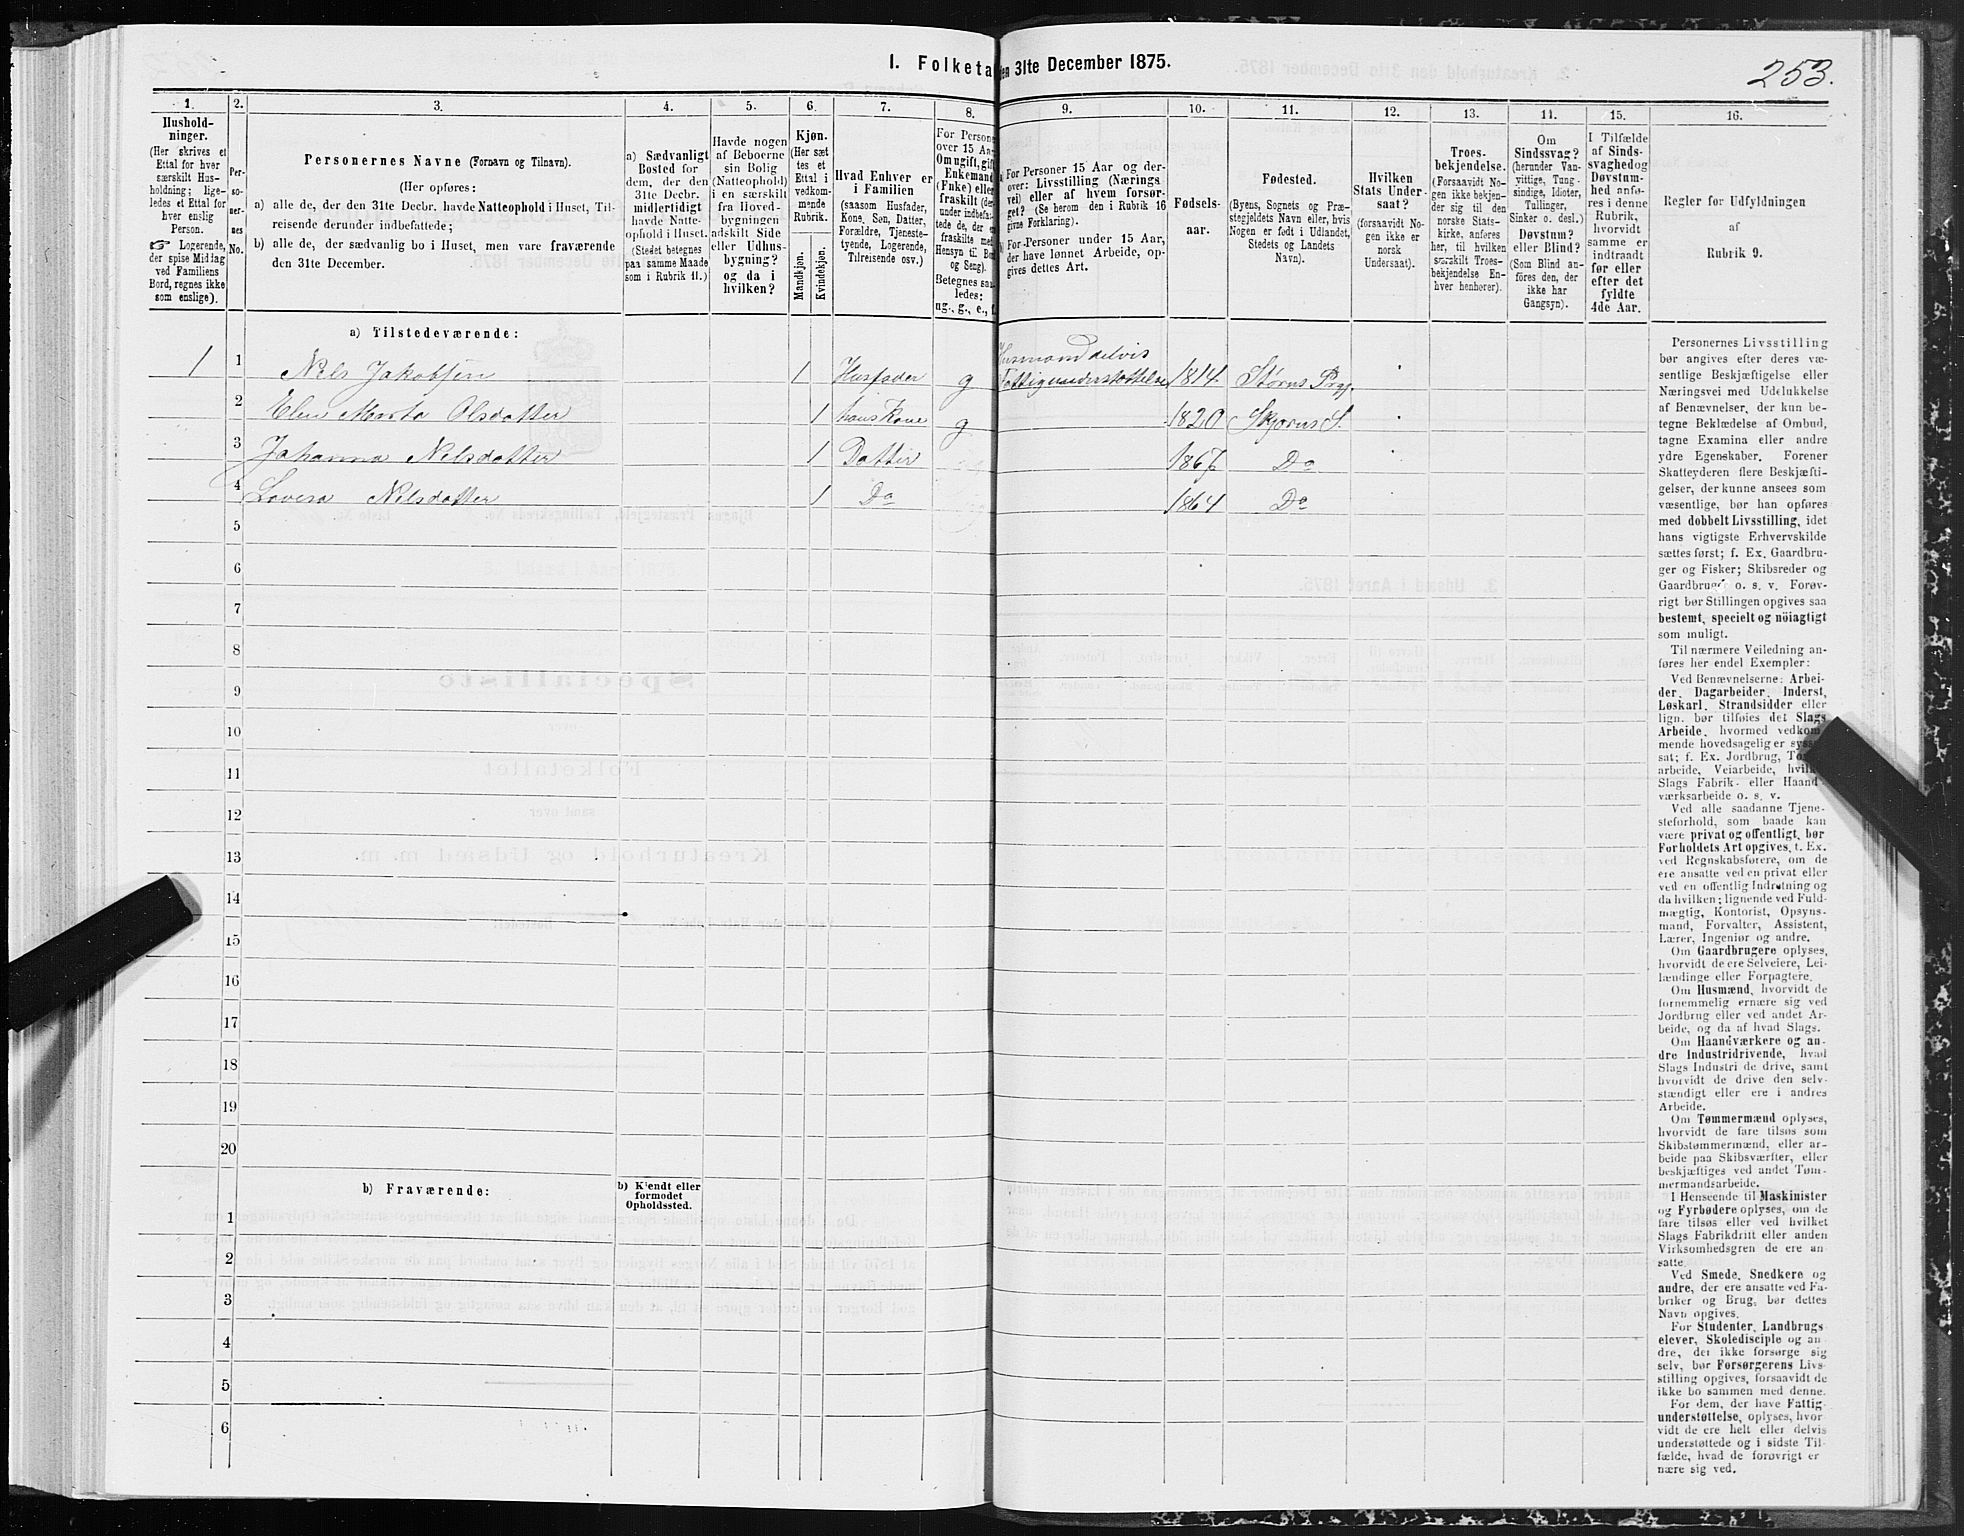 I. Folketa
den 31te December 1875.
253.
1.
2.
3.
4.
5.
6.
7.
8.
9.
10.
11.
12.
13.
14.
15.
16.
Hushold-
ninger.
(Her skrives et
Ettal for hver
særskilt Hus-
holdning; lige-
ledes et Ettal for
hver enslig
Person.
☞ Logerende,
der spise Middag
ved Familiens
Bord, regnes ikke
som enslige).
Per-
so-
ner-
nes
No.
Personernes Navne (Fornavn og Tilnavn).
(Her opføres:
a) alle de, der den 31te Decbr. havde Natteophold i Huset, Til-
reisende derunder indbefattede;
b) alle de, der sædvanlig bo i Huset, men vare fraværende
den 31te December.
a) Sædvanligt
Bosted for
dem, der den
31te Decbr.
midlertidigt
havde Natte-
ophold i Huset.
(Stedet betegnes
paa samme Maade
som i Rubrik 11.)
Havde nogen
af Beboerne
sin Bolig
(Natteophold)
i en særskilt
fra Hoved-
bygningen
adskilt Side
eller Udhus-
bygning?
og da i
hvilken?
Kjøn.
(Her sæt
tes et
Ettal i
vedkom-
mende
Rubrik.
Mandkjøn.
Kvindekjøn.
Hvad Enhver er
i Familien
(saasom Husfader,
Kone, Søn, Datter,
Forældre, Tjeneste-
tyende, Logerende,
Tilreisende osv.)
For Persone
over 15 Aar
Om ugift, gift
Enkemand
(Enke) eller
fraskilt (der
under indbefat-
tede de, der er
fraskilte med
Hensyn til Bord
og Seng).
Betegnes saa-
ledes:
ug., g., e., f.
a) For Personer 15 Aar og der-
over: Livsstilling (Nærings
vei) eller af hvem forsør-
get? (Se herom den i Rubrik 16
givne Forklaring).
b) For Personer under 15 Aar,
der have lønnet Arbeide, op-
gives dettes Art.
Fødsels-
aar.
Fødested.
(Byens, Sognets og Præ-
stegjeldets Navn eller, hvis
Nogen er født i Udlandet,
Stedets og Landets
Navn).
Hvilken
Stats Under-
saat?
(forsaavidt No-
gen ikke er
norsk
Undersaat).
Troes-
bekjendelse.
(Forsaavidt No-
gen ikke bekjen-
der sig til den
norske Stats-
kirke, anføres
her, til hvilken
særskilt Troes-
bekjendelse En-
hver henhører).
Om
Sindssvag?
(herunder Van-
vittige, Tung-
sindige, Idioter,
Tullinger,
Sinker o. desl.)
Døvstum?
eller Blind?
(Som Blind an-
føres den, der
ikke har
Gangsyn).
I Tilfælde
af Sinds-
svaghed og
Døvstum-
hed anfø-
res i denne
Rubrik,
hvorvidt
samme er
indtraadt
før eller
efter det
fyldte
4de Aar.
Regler for Udfyldningen
af
Rubrik 9.
a) Tilstedeværende:
Husmand delvis
1 1 Nels Jakobsen 1 Husfader g Fattigunderstøttelse 1814 Størns Prgj.
2 Elen Marta Olsdatter 1 hans Kone g 1820 Skjørns S.
3 Johanna Nelsdatter 1 Datter 1867 Do
4 Lovisa Nilsdatter 1 Do 1864 Do
5
6
7
8
9
10
11
12
13
14
15
16
17
18
19
20
b) Fraværende:
b) Kjendt eller
formodet
Opholdssted.
1
2
3
4
5
6
Personernes Livsstilling
bør angives efter deres væ-
sentlige Beskjæftigelse eller
Næringsvei med Udelukkelse
af Benævnelser, der kun be-
tegne Beklædelse af Ombud,
tagne Examina eller andre
ydre Egenskaber. Forener
Skatteyderen flere Beskjæfti-
gelser, der kunne ansees som
væsentlige, bør han opføres
med dobbelt Livsstilling, idet
hans vigtigste Erhvervskilde
sættes først; f. Ex. Gaardbru-
ger og Fisker; Skibsreder og
Gaardbruger o. s. v. Forøv-
rigt bør Stillingen opgives saa
bestemt, specielt og nöiagtigt
som muligt.
Til nærmere Veiledning an-
føres her endel Exempler:
Ved Benævnelserne: Arbei-
der, Dagarbeider, Inderst,
Løskarl, Strandsidder eller
lign. bør tilføies det Slags
Arbeide, hvormed vedkom-
mende hovedsagelig er syssel
sat; f. Ex. Jordbrug, To
arbeide, Veiarbeide, hvilk
Slags Fabrik- eller Haand-
værksarbeide o. s. v.
Ved alle saadanne Tjene-
steforhold, som baade kan
være privat og offentligt, bør
Forholdets Art opgives, f. Ex.
ved Regnskabsførere, om de
ere ansatte ved en privat eller
ved en offentlig Indretning og
da hvilken; lignende ved Fuld-
mægtig, Kontorist, Opsyns-
mand, Forvalter, Assistent,
Lærer, Ingeniør og andre.
Om Gaardbrugere oplyses,
hvorvidt de ere Selveiere, Lei-
lændinge eller Forpagtere.
Om Husmænd, hvorvidt de
fornemmelig ernære sig ved
Jordbrug eller ved andet Ar-
beide, og da af hvad Slags.
Om Haandværkere og an-
dre Industridrivende, hvad
Slags Industri de drive, samt
hvorvidt de drive den selv-
stændigt eller ere i andres
Arbeide.
Om Tømmermænd oplyses,
hvorvidt de fare tilsøs som
Skibstømmermænd, eller ar-
beide paa Skibsværfter, eller
beskjæftiges ved andet Tøm-
mermandsarbeide.
I Henseende til Maskinister
og Fyrbødere oplyses, om de
fare tilsøs eller ved hvilket
Slags Fabrikdrift eller anden
Virksomhedsgren de ere an-
satte.
Ved Smede, Snedkere og
andre, der ere ansatte ved Fa-
briker og Brug, bør dettes
Navn opgives.
For Studenter, Landbrugs
elever, Skoledisciple og an
dre, der ikke forsørge sig
selv, bør Forsørgerens Livs-
stilling opgives, forsaavidt de
ikke bo sammen med denne.
For dem, der have Fattig
understøttelse, oplyses, hvor
vidt de ere helt eller delvis
understøttede og i sidste Til
fælde, hvad de forøvrigt er
nære sig ved.